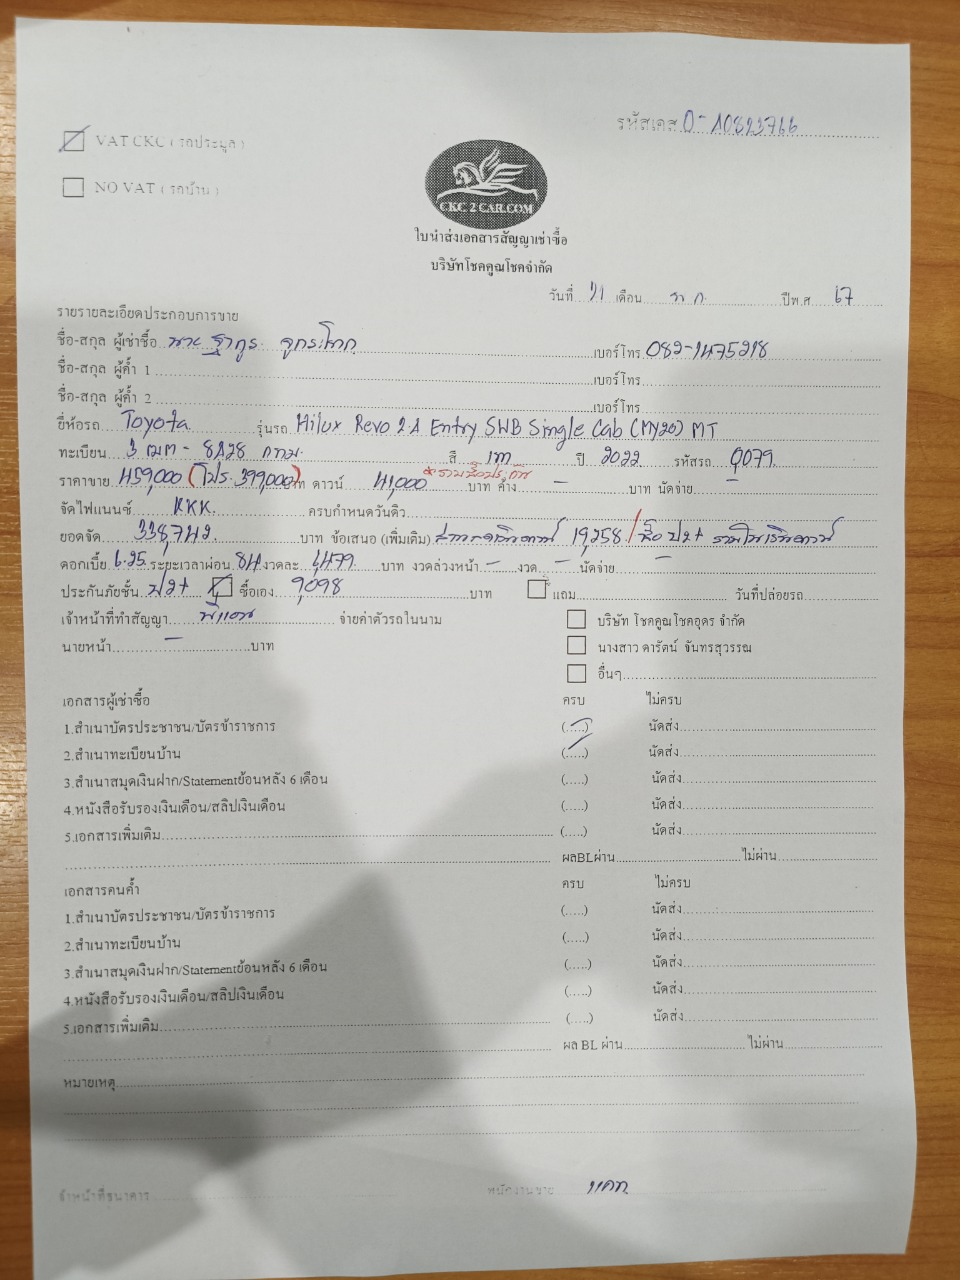 รหัสเคส 0-10823766
VAT CKC ( รถประมูล )
NO VAT ( รถบ้าน )
CKC 2 CAR.COM
ใบนำส่งเอกสารสัญญาเช่าซื้อ
บริษัทโชคคูณโชคจำกัด
วันที่ 21 เดือน ปีพ.ศ 67
รายรายละเอียดประกอบการขาย
ชื่อ-สกุล ผู้เช่าซื้อ นาย เบอร์โทร 082-1475218
ชื่อ-สกุล ผู้ค้ำ 1 เบอร์โทร
ชื่อ-สกุล ผู้ค้ำ 2 เบอร์โทร
ยี่ห้อรถ Toyota รุ่นรถ Hilux Revo 2.4 Entry SWB Single Cab (MY20) MT
ทะเบียน 3 ฒฒ - 8428 กทม. สี เทา ปี 2022 รหัสรถ 0079
ราคาขาย 459,000 (โปร. 399,000) บาท ดาวน์ 41,000 บาท ค้าง - บาท นัดจ่าย -
จัดไฟแนนซ์ KKK. ครบกำหนดวันดิว
ยอดจัด 338,742 บาท ข้อเสนอ (เพิ่มเติม) 19,258 / ซื้อ ป2+ รวมในเงินดาวน์
ดอกเบี้ย 6.25 ระยะเวลาผ่อน 84 งวดละ 6,479 บาท งวดล่วงหน้า - งวด - นัดจ่าย -
ประกันภัยชั้น ป2+ ซื้อเอง 9,098 บาท แถม วันที่ปล่อยรถ
เจ้าหน้าที่ทำสัญญา จ่ายค่าตัวรถในนาม บริษัท โชคคูณโชคอุดร จำกัด
นายหน้า - บาท นางสาว ดารัตน์ จันทรสุวรรณ
อื่นๆ
เอกสารผู้เช่าซื้อ ครบ ไม่ครบ
1.สำเนาบัตรประชาชน/บัตรข้าราชการ (.....) นัดส่ง
2.สำเนาทะเบียนบ้าน (.....) นัดส่ง
3.สำเนาสมุดเงินฝาก/Statementย้อนหลัง 6 เดือน (.....) นัดส่ง
4.หนังสือรับรองเงินเดือน/สลิปเงินเดือน (.....) นัดส่ง
5.เอกสารเพิ่มเติม (.....) นัดส่ง
ผลBLผ่าน ไม่ผ่าน
เอกสารคนค้ำ ครบ ไม่ครบ
1.สำเนาบัตรประชาชน/บัตรข้าราชการ (.....) นัดส่ง
2.สำเนาทะเบียนบ้าน (.....) นัดส่ง
3.สำเนาสมุดเงินฝาก/Statementย้อนหลัง 6 เดือน (.....) นัดส่ง
4.หนังสือรับรองเงินเดือน/สลิปเงินเดือน (.....) นัดส่ง
5.เอกสารเพิ่มเติม (.....) นัดส่ง
ผล BL ผ่าน ไม่ผ่าน
หมายเหตุ
จ้าหน้าที่ธนาคาร พนักงานขาย